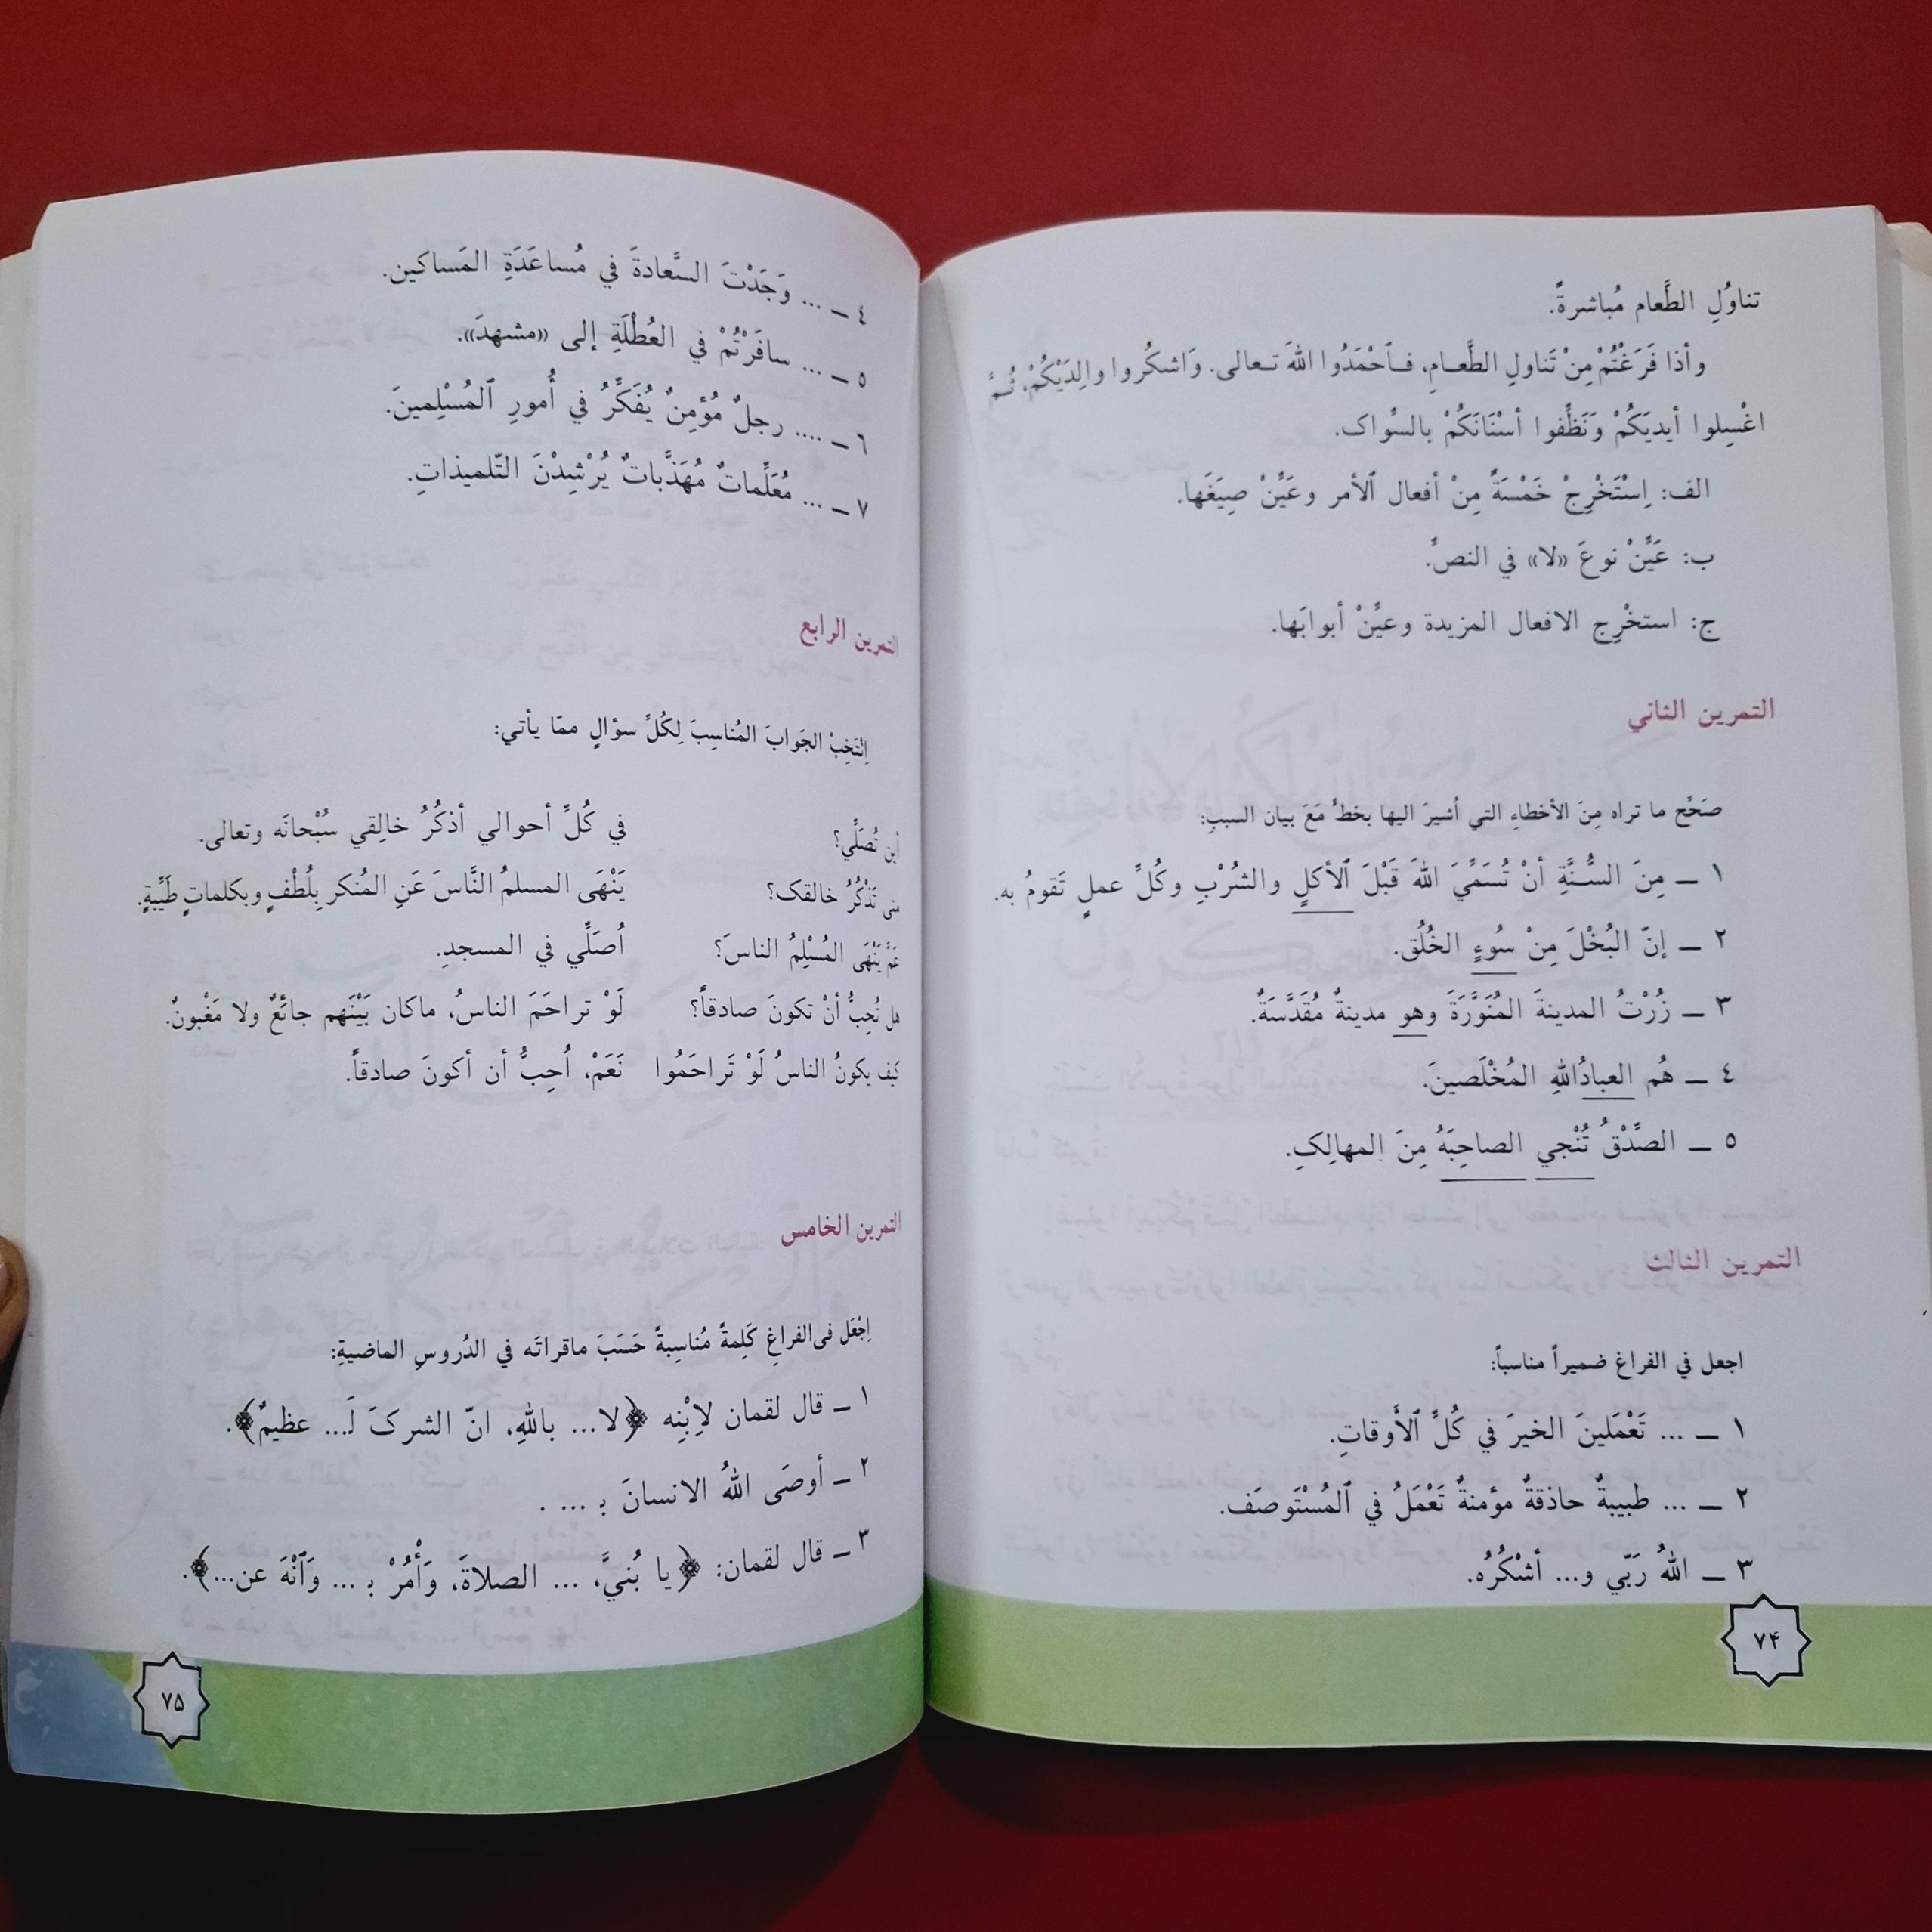 تناوُلِ الطَّعام مُباشرةً.
وأذا فَرَغْتُمْ مِنْ تَناولِ الطَّعـامِ، فـاَحْمَدُوا اللهَ تـعالى. وَاشكُروا والِدَيْكُمْ، ثُـمَّ
اغْسِلوا أيديَكُمْ وَنَظِّفوا أسْنَانَكُمْ بالسِّواك.
الف: اِسْتَخْرِجْ خَمْسَةً مِنْ أفعال ٱلأمر وعَيِّنْ صِيَغَها.
ب: عَيِّنْ نوعَ «لا» في النصِّ.
ج: استخْرِج الافعال المزيدة وعيِّنْ أبوابَها.
التمرين الثاني
صَحِّح ما تراه مِنَ الأخطاءِ التي اُشيرَ اليها بخطٍّ مَعَ بيان السببِ:
١ ــ مِنَ السُّنَّةِ أنْ تُسَمِّيَ اللهَ قَبْلَ ٱلأكلٍ والشُرْبِ وكُلِّ عملٍ تَقومُ به.
٢ ــ إنّ البُخْلَ مِنْ سُوءٍ الخُلُق.
٣ ــ زُرْتُ المدينةَ المُنَوَّرَةَ وهو مدينةٌ مُقَدَّسَةٌ.
٤ ــ هُم العبادُاللهِ المُخْلَصينَ.
٥ ــ الصِّدْقُ تُنْجي الصاحِبَهُ مِنَ المهالِكِ.
التمرين الثالث
اجعل في الفراغ ضميراً مناسباً:
١ ــ ... تَعْمَلينَ الخيرَ في كُلِّ ٱلأَوقاتِ.
٢ ــ ... طبيبةٌ حاذقةٌ مؤمنةٌ تَعْمَلُ في ٱلمُسْتَوصَف.
٣ ــ اللهُ رَبّي و... أشْكُرُهُ.
٧۴
٤ ــ ... وَجَدْتَ السَّعادةَ في مُساعَدَةِ المَساكين.
٥ ــ ... سافَرْتُمْ في العُطْلَةِ إلى «مشهدَ».
٦ ــ .... رجلٌ مُؤمِنٌ يُفَكِّرُ في أُمورِ ٱلمُسْلِمينَ.
٧ ــ ... مُعَلِّماتٌ مُهَذَّباتٌ يُرْشِدْنَ التّلميذاتِ.
التمرين الرابع
اِنْتَخِبْ الجَوابَ المُناسِبَ لِكُلِّ سؤالٍ ممّا يأتي:
أين تُصَلِّي؟ في كُلِّ أحوالي أذكُرُ خالِقي سُبْحانَه وتعالى.
متى تَذْكُرُ خالقك؟ يَنْهَى المسلمُ النَّاسَ عَنِ المُنكر بِلُطْفٍ وبكلماتٍ طَيِّبَةٍ.
عَمَّ يَنْهَى المُسْلِمُ الناسَ؟ اُصَلِّي في المسجدِ.
هل تُحِبُّ أنْ تكونَ صادقاً؟ لَوْ تراحَمَ الناسُ، ماكان بَيْنَهم جائعٌ ولا مَغْبونٌ.
كيف يكونُ الناسُ لَوْ تَراحَمُوا نَعَمْ، اُحِبُّ أن أكونَ صادقاً.
التمرين الخامس
اِجْعَل فى‌الفراغِ كَلِمةً مُناسِبةً حَسَبَ ماقراتَه في الدُروسِ الماضيةِ:
١ ــ قال لقمان لاِبْنِه ﴿لا... باللهِ، انّ الشركَ لَـ... عظيمٌ﴾.
٢ ــ أوصَى اللهُ الانسانَ بـ ... .
٣ ــ قال لقمان: ﴿يا بُنيَّ، ... الصلاةَ، وَأْمُرْ بـ ... وَٱنْهَ عن...﴾.
٧۵